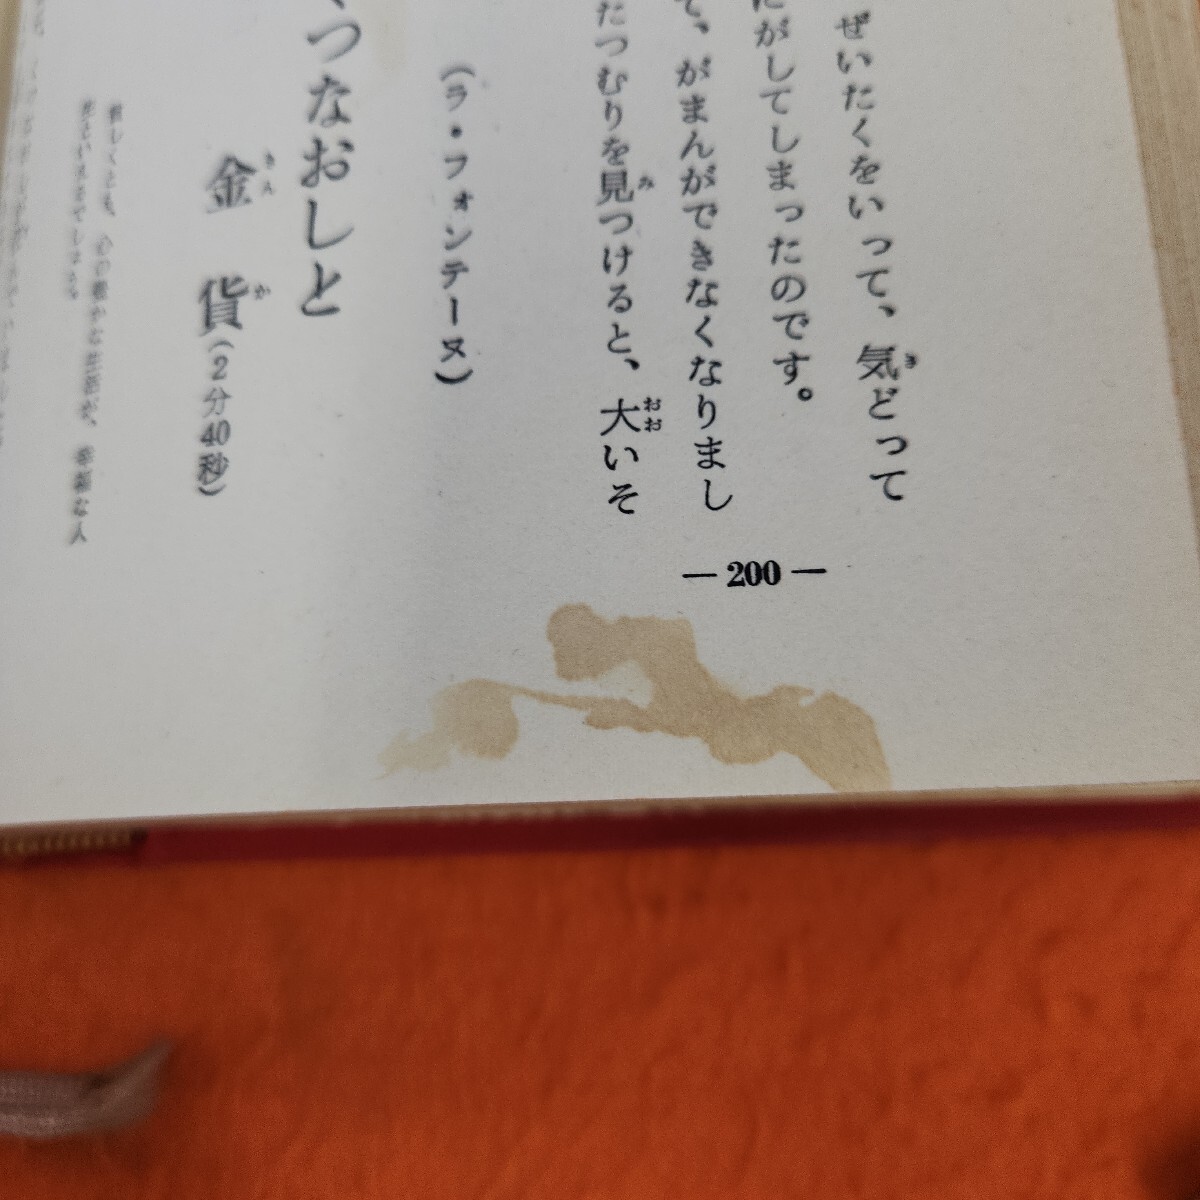 ぜいたくをいって、気どって
にがしてしまったのです。
て、がまんができなくなりまし
たつむりを見つけると、大いそ
(ラ・フォンテーヌ)
くつなおしと
金貨(2分40秒)
貧しくとも、心の豊かな生活が、幸福な人
— 200 —